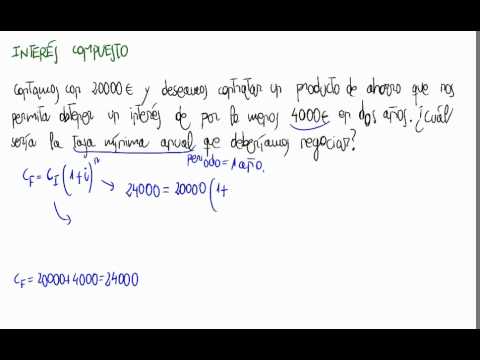 INTERÉS COMPUESTO
Contamos con 20000€ y deseamos contratar un producto de ahorro que nos
permita obtener un interés de por lo menos 4000€ en dos años. ¿Cuál
sería la tasa mínima anual que deberíamos negociar?
periodo = 1 año.
C_F = C_I (1+i)^n → 24000 = 20000 (1+
C_F = 20000+4000=24000